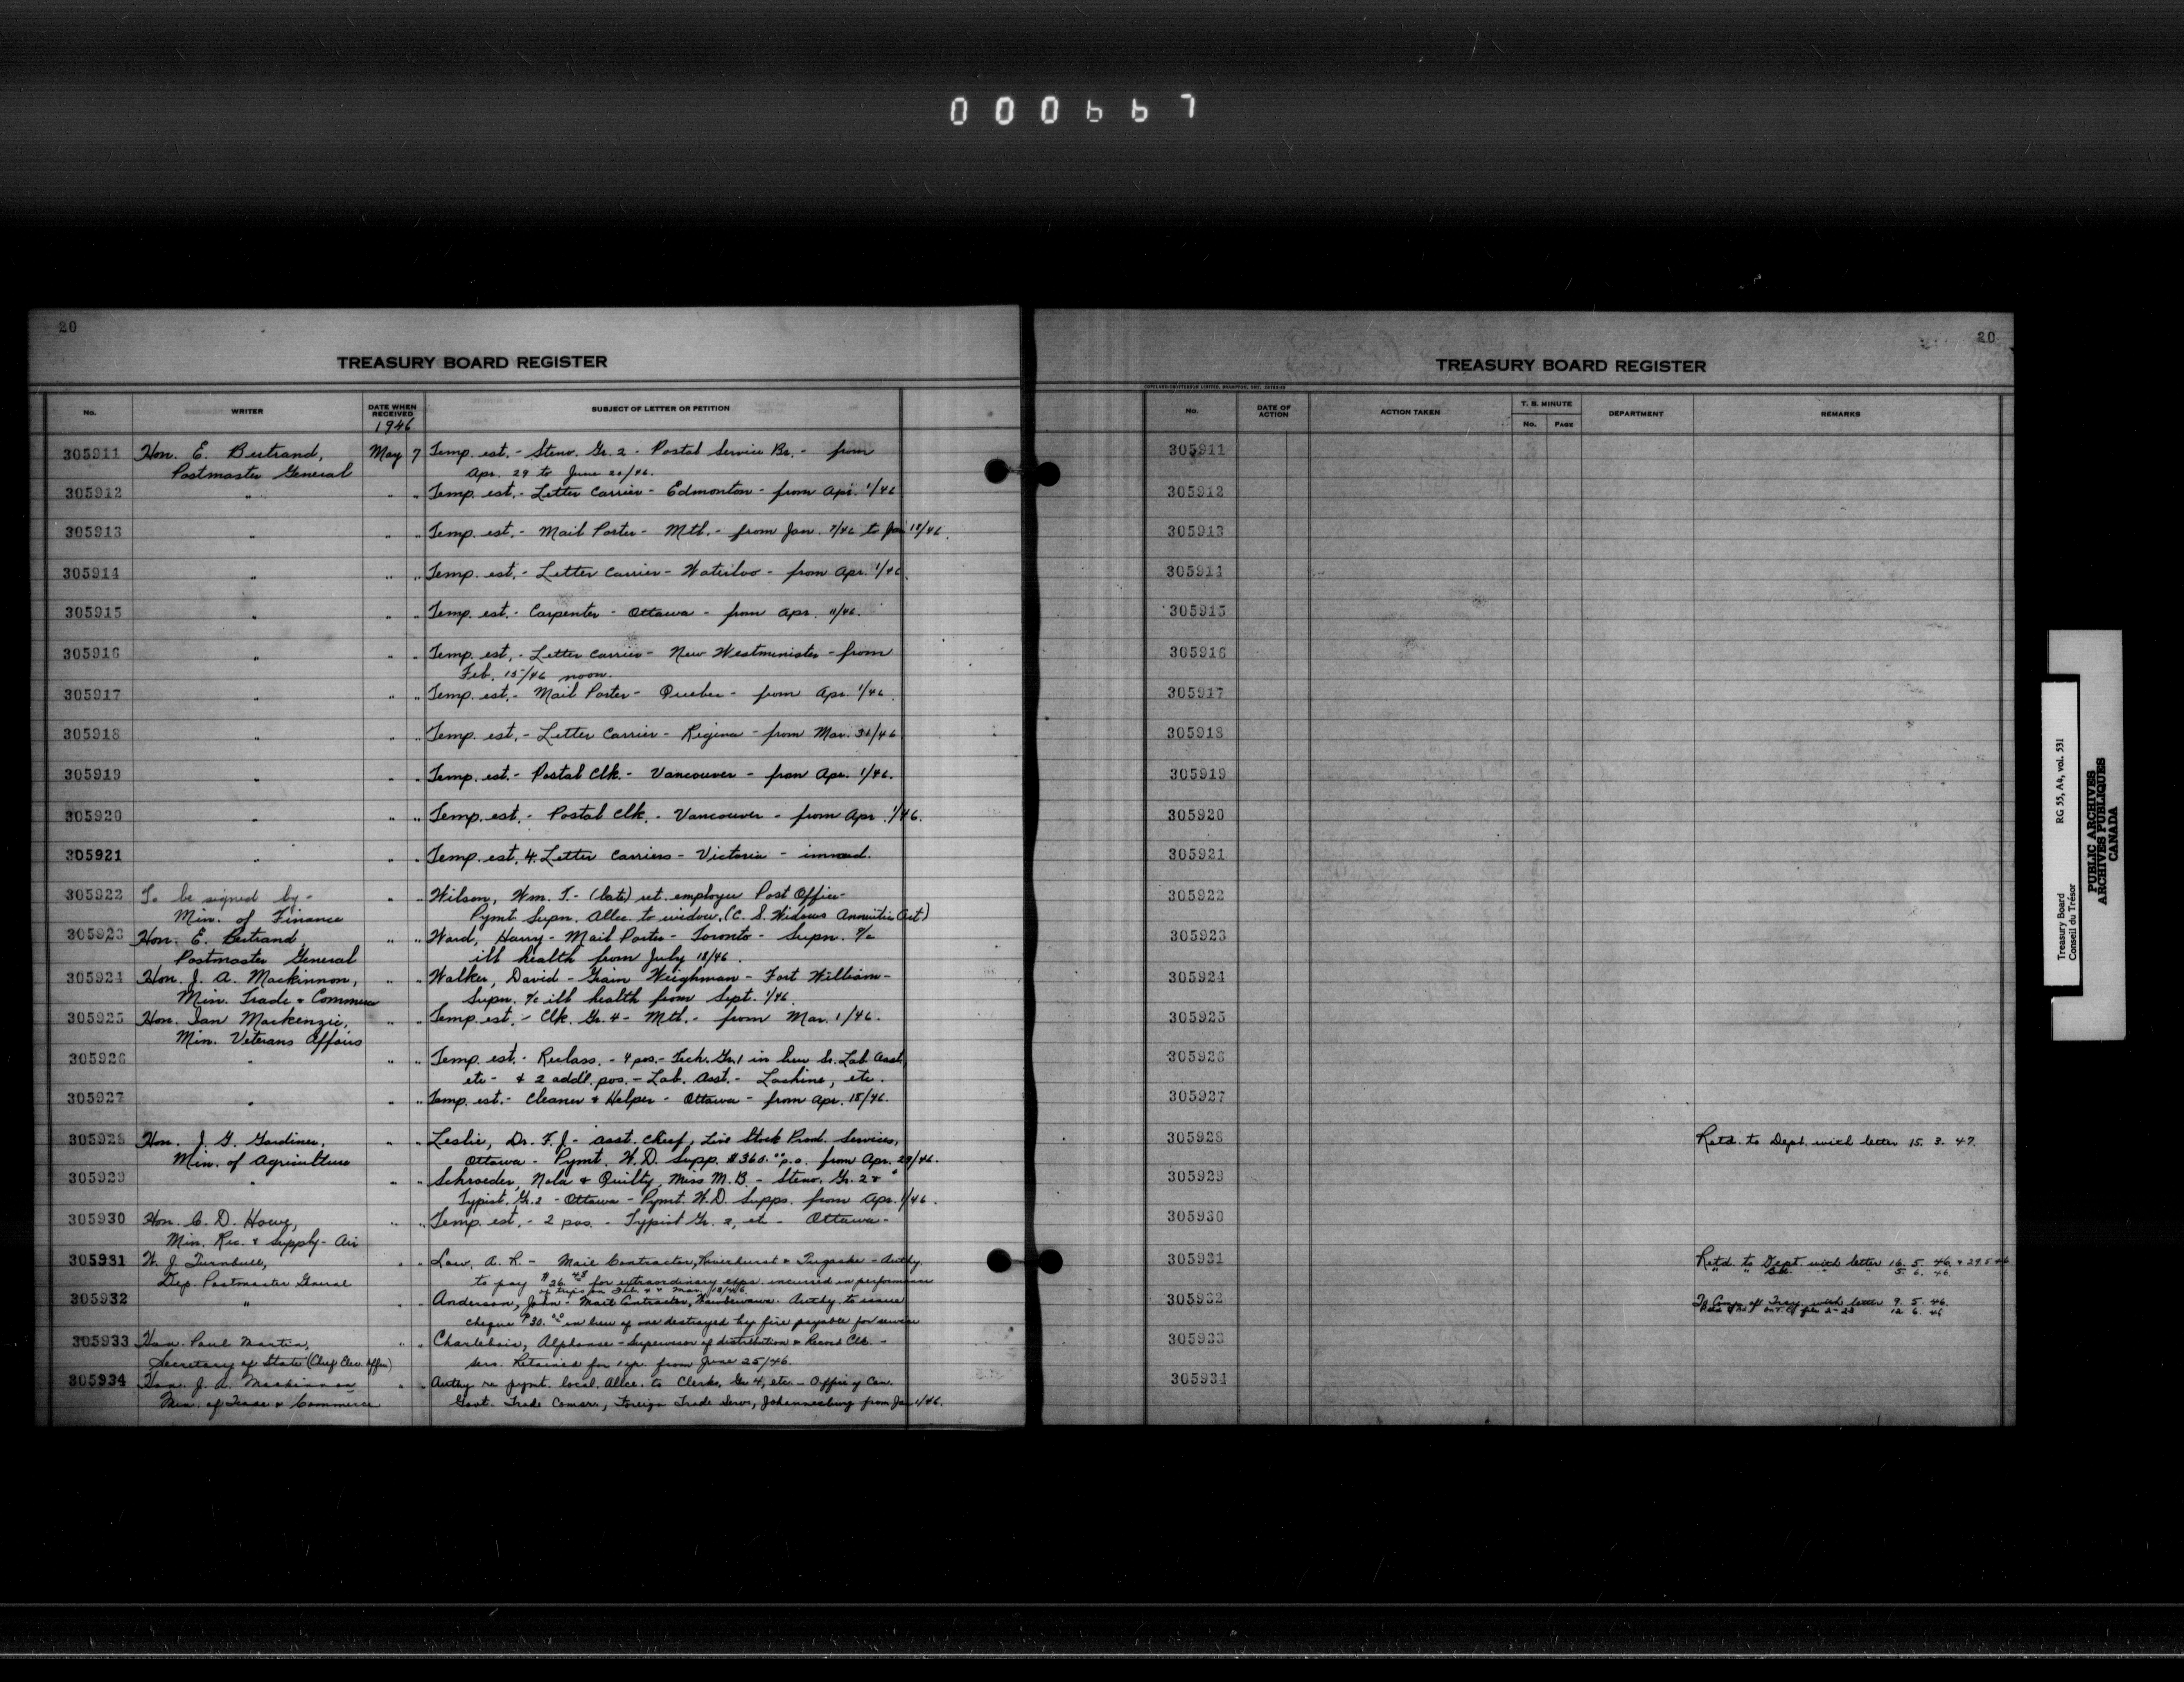 000667
20
TREASURY BOARD REGISTER
No. WRITER DATE WHEN RECEIVED SUBJECT OF LETTER OR PETITION
1946
305911 Hon. E. Bertrand, May 7 Temp. est. - Steno. Gr. 2 - Postal Service Br. - from
Postmaster General Apr. 29 to June 20/46.
305912 " " " Temp. est. - Letter Carrier - Edmonton - from Apr. 1/46
305913 " " " Temp. est. - Mail Porter - Mtl. - from Jan. 7/46 to Jan 18/46.
305914 " " " Temp. est. - Letter Carrier - Waterloo - from Apr. 1/46.
305915 " " " Temp. est. - Carpenter - Ottawa - from Apr. 11/46.
305916 " " " Temp. est. - Letter Carrier - New Westminister - from
Feb. 15/46 noon.
305917 " " " Temp. est. - Mail Porter - Quebec - from Apr. 1/46.
305918 " " " Temp. est. - Letter Carrier - Regina - from Mar. 31/46
305919 " " " Temp. est. - Postal Clk. - Vancouver - from Apr. 1/46.
305920 " " " Temp. est. - Postal Clk. - Vancouver - from Apr. 1/46.
305921 " " " Temp. est. 4 Letter Carriers - Victoria - immed.
305922 To be signed by - " " Wilson, Wm. T. - (late) ret. employee Post Office -
Min. of Finance Pymt Supn. Allce. to widow. (C. S. Widows Annuities Act)
305923 Hon. E. Bertrand, " " Ward, Harry - Mail Porter - Toronto - Supn. a/c
Postmaster General ill health from July 18/46.
305924 Hon. J. A. Mackinnon, " " Walker, David - Grain Weighman - Fort William -
Min. Trade & Commerce Supn. a/c ill health from Sept. 1/46.
305925 Hon. Ian Mackenzie, " " Temp. est. - Clk. Gr. 4 - Mtl. - from Mar. 1/46.
Min. Veterans Affairs
305926 " " " Temp. est. - Reclass. - 4 pos. - Tech. Gr. 1 in lieu Sr. Lab. Asst.
etc - & 2 add'l. pos. - Lab. Asst. - Lachine, etc.
305927 " " " Temp. est. - Cleaner & Helper - Ottawa - from Apr. 18/46.
305928 Hon. J. G. Gardiner, " " Leslie, Dr. F. J. - Asst. Chief, Live Stock Prod. Services,
Min. of Agriculture Ottawa - Pymt. W.D. Supp. $360.00 p.a. from Apr. 29/46.
305929 " " " Schroeder, Nola & Quilty, Miss M. B. - Steno. Gr. 2 &
Typist, Gr. 2 - Ottawa - Pymt. W.D. Supps. from Apr. 1/46.
305930 Hon. C. D. Howe, " " Temp. est. - 2 pos. - Typist Gr. 2, etc - Ottawa -
Min. Rec. & Supply - Air
305931 W. J. Turnbull, " " Law, A. R. - Mail Contractor, Riverhurst & Tugaske - Authy.
Dep. Postmaster General to pay $26.48 for extraordinary exps. incurred in performance
of trips on Feb. & Mar. 18/46.
305932 " " " Anderson, John - Mail Contractor, - Authy. to issue
cheque $30.00 in lieu of one destroyed by fire payable for service
305933 Hon. Paul Martin, " " Charlebois, Alphonse - Supervisor of distribution & Record Clk. -
Secretary of State (Chief Elec. Officer) Serv. Retained for 1 yr. from June 25/46.
305934 Hon. J. A. Mackinnon " " Authy re pymt. local Allce. to Clerks, Gr 4, etc. - Office of Can.
Min. of Trade & Commerce Govt. Trade Comsr., Foreign Trade Serv., Johannesburg from Jan 1/46.
20
TREASURY BOARD REGISTER
No. DATE OF ACTION ACTION TAKEN T. B. MINUTE No. PAGE DEPARTMENT REMARKS
305911
305912
305913
305914
305915
305916
305917
305918
305919
305920
305921
305922
305923
305924
305925
305926
305927
305928 Retd. to Dept. with letter 15. 3. 47.
305929
305930
305931 Retd. to Dept. with letter 16. 5. 46. & 29.5.46
" " " 5. 6. 46.
305932 To Comp. of Treas. with letter 9. 5. 46.
12. 6. 46
305933
305934
Treasury Board RG 55, A4, vol. 531
Conseil du Trésor
PUBLIC ARCHIVES
ARCHIVES PUBLIQUES
CANADA